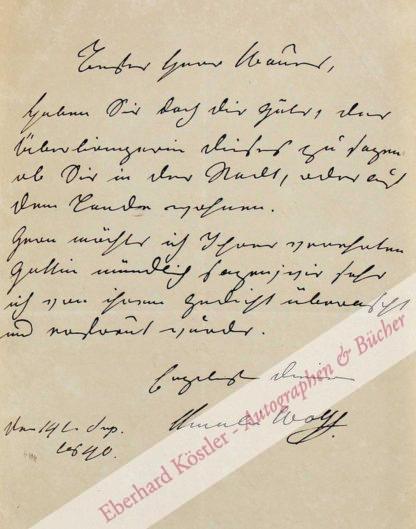 Bester Herr Bäuerl,
haben Sie doch die Güte, der
Überbringerin dieses zu sagen
ob Sie in der Stadt, oder auf
dem Lande wohnen.
Gern möchte ich Ihrer verehrten
Gattin mündlich sagen, wie sehr
ich von ihrem Gedicht überrascht
und erfreut wurde.
Amalie Wolff.
Den 19t. Sep.
Eberhard Köstler - Autographen & Bücher